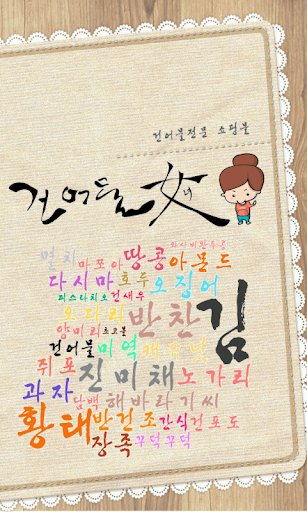 건어물전문 쇼핑몰
건어물女
녀
와사비완두콩
멸치 마쪼아 땅콩 아몬드
다시마 호두 오징어
피스타치오 건새우
오다리 반찬 김
양미리 초코볼
건어물 미역 캐슈넛
쥐포 진미채 노가리
과자 담백 해바라기씨
황태 반건조 간식 건포도
장족 꾸덕꾸덕